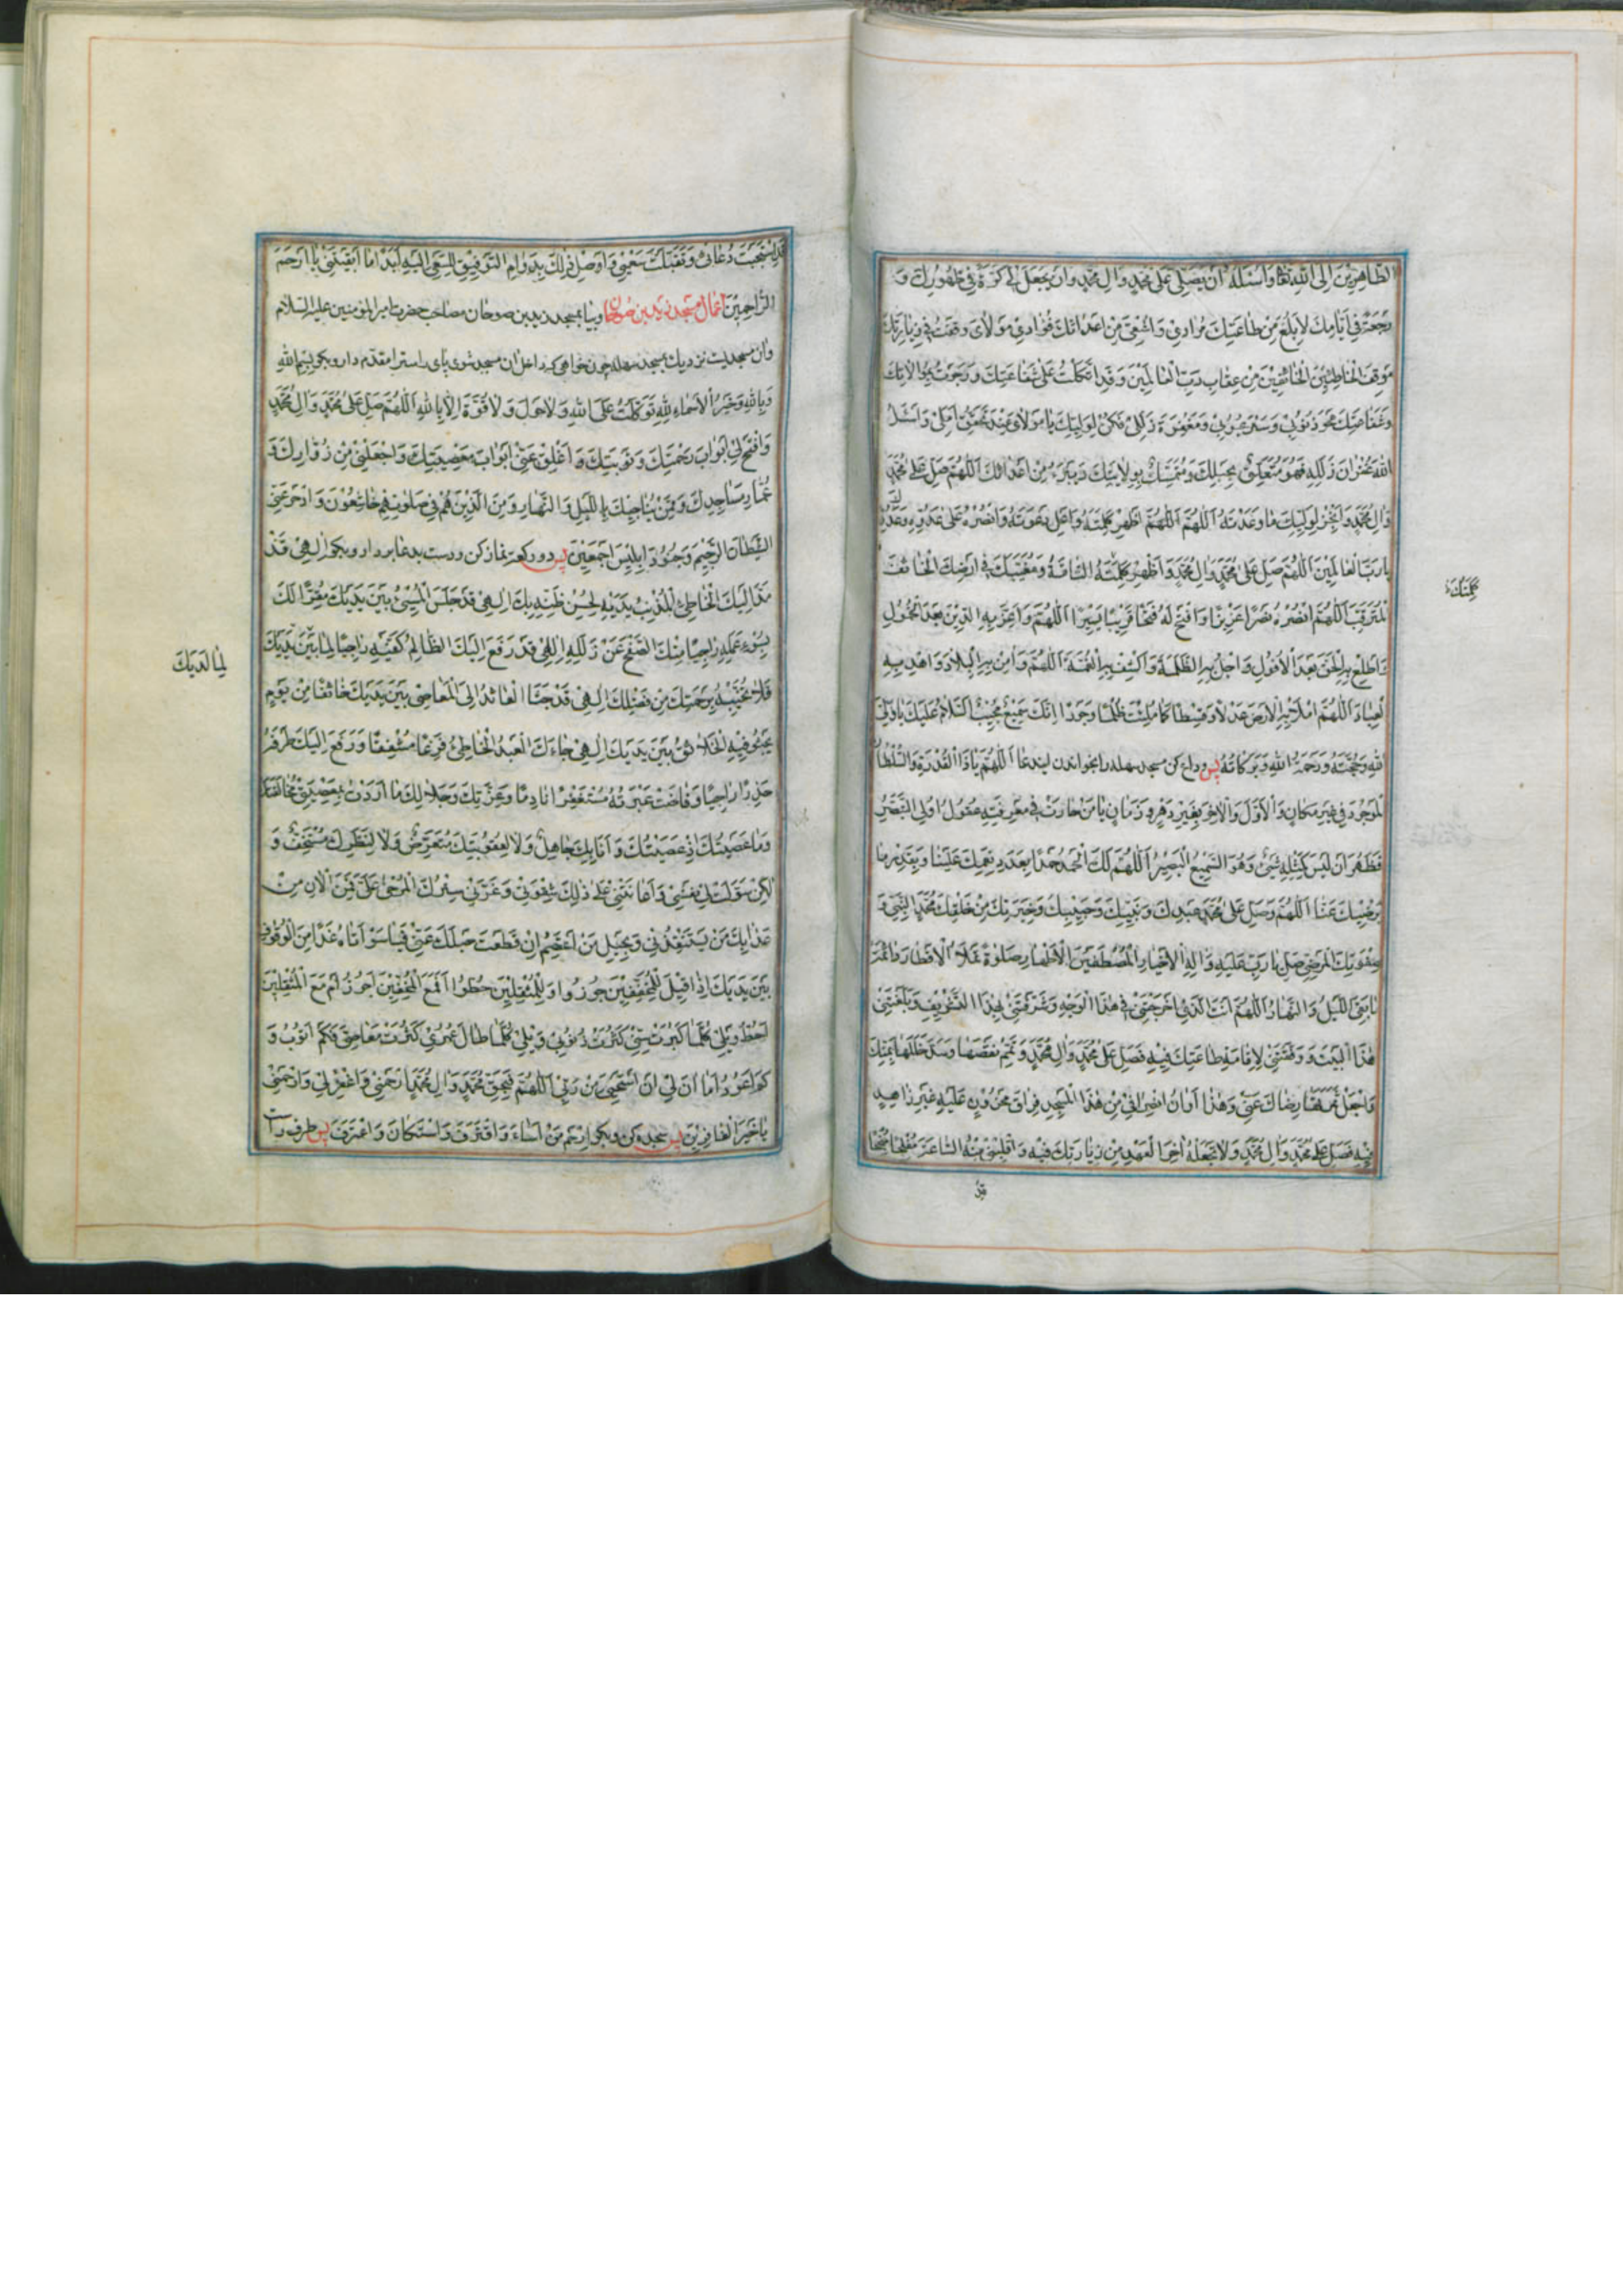 الطَّاهِرِينَ اِلَى اللّٰهِ تَعَالٰى وَاَسْئَلُهُ اَنْ يُصَلِّيَ عَلٰى مُحَمَّدٍ وَاٰلِ مُحَمَّدٍ وَاَنْ يَجْعَلَ لِي كَرَّةً فِي ظُهُورِكَ وَ
رَجْعَةً فِي اَيَّامِكَ لِاَبْلُغَ مِنْ طَاعَتِكَ مُرَادِي وَاَشْفِيَ مِنْ اَعْدَائِكَ فُؤَادِي مَوْلَايَ وَقَفْتُ فِي زِيَارَتِكَ
مَوْقِفَ الْخَاطِئِينَ الْخَائِفِينَ مِنْ عِقَابِ رَبِّ الْعَالَمِينَ وَقَدِ اتَّكَلْتُ عَلٰى شَفَاعَتِكَ وَرَجَوْتُ بِمُوَالَاتِكَ
وَشَفَاعَتِكَ مَحْوَ ذُنُوبِي وَسَتْرَ عُيُوبِي وَمَغْفِرَةَ زَلَلِي فَكُنْ لِوَلِيِّكَ يَا مَوْلَايَ عِنْدَ تَحْقِيقِ اَمَلِي وَاسْئَلِ
اللّٰهَ غُفْرَانَ زَلَلِهِ فَهُوَ مُتَعَلِّقٌ بِحَبْلِكَ وَمُتَمَسِّكٌ بِوِلَايَتِكَ وَيَبْرَءُ مِنْ اَعْدَائِكَ اَللّٰهُمَّ صَلِّ عَلٰى مُحَمَّدٍ
وَاٰلِ مُحَمَّدٍ وَاَنْجِزْ لِوَلِيِّكَ مَا وَعَدْتَهُ اَللّٰهُمَّ اَللّٰهُمَّ اَظْهِرْ كَلِمَتَهُ وَاَعْلِ دَعْوَتَهُ وَانْصُرْهُ عَلٰى عَدُوِّهِ وَعَدُوِّكَ
يَا رَبَّ الْعَالَمِينَ اَللّٰهُمَّ صَلِّ عَلٰى مُحَمَّدٍ وَاٰلِ مُحَمَّدٍ وَاَظْهِرْ كَلِمَتَهُ التَّامَّةَ وَمُغَيَّبَكَ فِي اَرْضِكَ الْخَائِفَ
الْمُتَرَقِّبَ اَللّٰهُمَّ انْصُرْهُ نَصْرًا عَزِيزًا وَافْتَحْ لَهُ فَتْحًا قَرِيبًا يَسِيرًا اَللّٰهُمَّ وَاَعِزَّ بِهِ الدِّينَ بَعْدَ الْخُمُولِ
وَاَطْلِعْ بِهِ الْحَقَّ بَعْدَ الْاُفُولِ وَاَجْلِ بِهِ الظُّلْمَةَ وَاكْشِفْ بِهِ الْغُمَّةَ اَللّٰهُمَّ وَاٰمِنْ بِهِ الْبِلَادَ وَاهْدِ بِهِ
الْعِبَادَ اَللّٰهُمَّ امْلَأْ بِهِ الْاَرْضَ عَدْلًا وَقِسْطًا كَمَا مُلِئَتْ ظُلْمًا وَجَوْرًا اِنَّكَ سَمِيعٌ مُجِيبٌ اَلسَّلَامُ عَلَيْكَ يَا وَلِيَّ
اللّٰهِ وَحُجَّتَهُ وَرَحْمَةُ اللّٰهِ وَبَرَكَاتُهُ پس وداع كن مسجد سهله را بخواندن ايندعا اَللّٰهُمَّ يَا ذَا الْقُدْرَةِ وَالسُّلْطَانِ
الْمَوْجُودَ فِي غَيْرِ مَكَانٍ وَالْاَوَّلَ وَالْاٰخِرَ بِغَيْرِ دَهْرٍ وَزَمَانٍ يَا مَنْ حَارَتْ فِي مَعْرِفَتِهِ عُقُولُ اُولِي التَّبَصُّرِ
فَظَهَرَ اَنْ لَيْسَ كَمِثْلِهِ شَيْءٌ وَهُوَ السَّمِيعُ الْبَصِيرُ اَللّٰهُمَّ لَكَ الْحَمْدُ حَمْدًا بِعَدَدِ نِعَمِكَ عَلَيْنَا وَبِقَدْرِ مَا
يُرْضِيكَ عَنَّا اَللّٰهُمَّ وَصَلِّ عَلٰى مُحَمَّدٍ عَبْدِكَ وَنَبِيِّكَ وَحَبِيبِكَ وَخِيَرَتِكَ مِنْ خَلْقِكَ مُحَمَّدٍ النَّبِيِّ وَ
صِفْوَتِكَ الْمَرْضِيِّ صَلِّ يَا رَبِّ عَلَيْهِ وَاٰلِهِ الْاَخْيَارِ الْمُصْطَفَيْنَ الْاَطْهَارِ صَلٰوةً تَمْلَأُ الْاَقْطَارَ دَائِمَةً
مَا بَقِيَ اللَّيْلُ وَالنَّهَارُ اَللّٰهُمَّ اَنْتَ الَّذِي اَخْرَجْتَنِي فِي هٰذَا الْوَجْهِ وَشَرَّفْتَنِي بِهٰذَا التَّشْرِيفِ وَبَلَّغْتَنِي
هٰذَا الْبَيْتَ وَوَفَّقْتَنِي لِاِقَامَةِ طَاعَتِكَ فِيهِ فَصَلِّ عَلٰى مُحَمَّدٍ وَاٰلِ مُحَمَّدٍ وَتَمِّمْ نَقْصَهَا وَسُدَّ خَلَلَهَا بِمَنِّكَ
وَاجْعَلْ رِضَاكَ عَنِّي وَهٰذَا اَوَانُ انْصِرَافِي مِنْ هٰذَا الْمَسْجِدِ فِرَاقَ مَحْزُونٍ عَلَيْهِ غَيْرِ زَاهِدٍ
فِيهِ فَصَلِّ عَلٰى مُحَمَّدٍ وَاٰلِ مُحَمَّدٍ وَلَا تَجْعَلْهُ اٰخِرَ الْعَهْدِ مِنْ زِيَارَتِكَ فِيهِ وَاقْلِبْنِي مِنْهُ السَّاعَةَ مُفْلِحًا مُنْجِحًا
قد
كَلِمَتَكَ
قَدِ اسْتَجَبْتَ دُعَائِي وَتَقَبَّلْتَ سَعْيِي وَاَوْصِلْ ذٰلِكَ بِدَوَامِ التَّوْفِيقِ لِلسَّعْيِ اِلَيْهِ اَبَدًا مَا اَبْقَيْتَنِي يَا اَرْحَمَ
الرَّاحِمِينَ اعمال مسجد زيد بن صوحان وبيا بمسجد زيد بن صوحان مصاحب حضرت امير المؤمنين عليه السلام
وان مسجديست نزديك بمسجد سهله چون خواهى كه داخل ان مسجد شوى پاى راست را مقدم دار و بكو بِسْمِ اللّٰهِ
وَبِاللّٰهِ وَخَيْرُ الْاَسْمَاءِ لِلّٰهِ تَوَكَّلْتُ عَلَى اللّٰهِ وَلَا حَوْلَ وَلَا قُوَّةَ اِلَّا بِاللّٰهِ اَللّٰهُمَّ صَلِّ عَلٰى مُحَمَّدٍ وَاٰلِ مُحَمَّدٍ
وَافْتَحْ لِي اَبْوَابَ رَحْمَتِكَ وَتَوْبَتِكَ وَاَغْلِقْ عَنِّي اَبْوَابَ مَعْصِيَتِكَ وَاجْعَلْنِي مِنْ زُوَّارِكَ وَ
عُمَّارِ مَسَاجِدِكَ وَمِمَّنْ يُنَاجِيكَ بِاللَّيْلِ وَالنَّهَارِ وَمِنَ الَّذِينَ هُمْ فِي صَلٰوتِهِمْ خَاشِعُونَ وَادْحَرْ عَنِّي
الشَّيْطَانَ الرَّجِيمَ وَجُنُودَ اِبْلِيسَ اَجْمَعِينَ پس دو ركعت نماز كن و دست بدعا بردار و بكو اِلٰهِي قَدْ
مَدَّ اِلَيْكَ الْخَاطِئُ الْمُذْنِبُ يَدَيْهِ لِحُسْنِ ظَنِّهِ بِكَ اِلٰهِي قَدْ جَلَسَ الْمُسِيءُ بَيْنَ يَدَيْكَ مُقِرًّا لَكَ
بِسُوءِ عَمَلِهِ رَاجِيًا مِنْكَ الصَّفْحَ عَنْ زَلَلِهِ اِلٰهِي قَدْ رَفَعَ اِلَيْكَ الظَّالِمُ كَفَّيْهِ رَاجِيًا لِمَا بَيْنَ يَدَيْكَ
فَلَا تُخَيِّبْهُ بِرَحْمَتِكَ مِنْ فَضْلِكَ اِلٰهِي قَدْ جَثَا الْعَائِدُ اِلَى الْمَعَاصِي بَيْنَ يَدَيْكَ خَائِفًا مِنْ يَوْمٍ
يَجْثُو فِيهِ الْخَلَائِقُ بَيْنَ يَدَيْكَ اِلٰهِي جَاءَكَ الْعَبْدُ الْخَاطِئُ فَزِعًا مُشْفِقًا وَرَفَعَ اِلَيْكَ طَرْفَهُ
حَذِرًا رَاجِيًا وَفَاضَتْ عَبْرَتُهُ مُسْتَغْفِرًا نَادِمًا وَعِزَّتِكَ وَجَلَالِكَ مَا اَرَدْتُ بِمَعْصِيَتِي مُخَالَفَتَكَ
وَمَا عَصَيْتُكَ اِذْ عَصَيْتُكَ وَاَنَا بِكَ جَاهِلٌ وَلَا لِعُقُوبَتِكَ مُتَعَرِّضٌ وَلَا لِنَظَرِكَ مُسْتَخِفٌّ وَ
لٰكِنْ سَوَّلَتْ لِي نَفْسِي وَاَعَانَتْنِي عَلٰى ذٰلِكَ شِقْوَتِي وَغَرَّنِي سِتْرُكَ الْمُرْخٰى عَلَيَّ فَمَنِ الْاٰنَ مِنْ
عَذَابِكَ مَنْ يَسْتَنْقِذُنِي وَبِحَبْلِ مَنْ اَعْتَصِمُ اِنْ قَطَعْتَ حَبْلَكَ عَنِّي فَيَا سَوْاَتَاهُ غَدًا مِنَ الْوُقُوفِ
بَيْنَ يَدَيْكَ اِذَا قِيلَ لِلْمُخِفِّينَ جُوزُوا وَلِلْمُثْقِلِينَ حُطُّوا اَفَمَعَ الْمُخِفِّينَ اَجُوزُ اَمْ مَعَ الْمُثْقِلِينَ
اَحُطُّ وَيْلِي كُلَّمَا كَبُرَتْ سِنِّي كَثُرَتْ ذُنُوبِي وَيْلِي كُلَّمَا طَالَ عُمُرِي كَثُرَتْ مَعَاصِيَّ فَكَمْ اَتُوبُ وَ
كَمْ اَعُودُ اَمَا اٰنَ لِي اَنْ اَسْتَحْيِيَ مِنْ رَبِّي اَللّٰهُمَّ فَبِحَقِّ مُحَمَّدٍ وَاٰلِ مُحَمَّدٍ اِرْحَمْنِي وَاغْفِرْ لِي وَارْحَمْنِي
يَا خَيْرَ الْغَافِرِينَ پس سجده كن و بكو اِرْحَمْ مَنْ اَسَاءَ وَاقْتَرَفَ وَاسْتَكَانَ وَاعْتَرَفَ پس طرف راست
لِمَا لَدَيْكَ